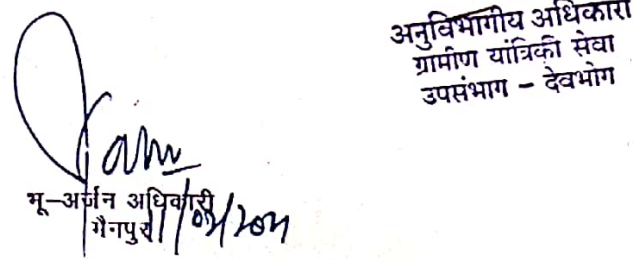 अनुविभागीय अधिकारी
ग्रामीण यांत्रिकी सेवा
उपसंभाग – देवभोग
भू–अर्जन अधिकारी
मैनपुर